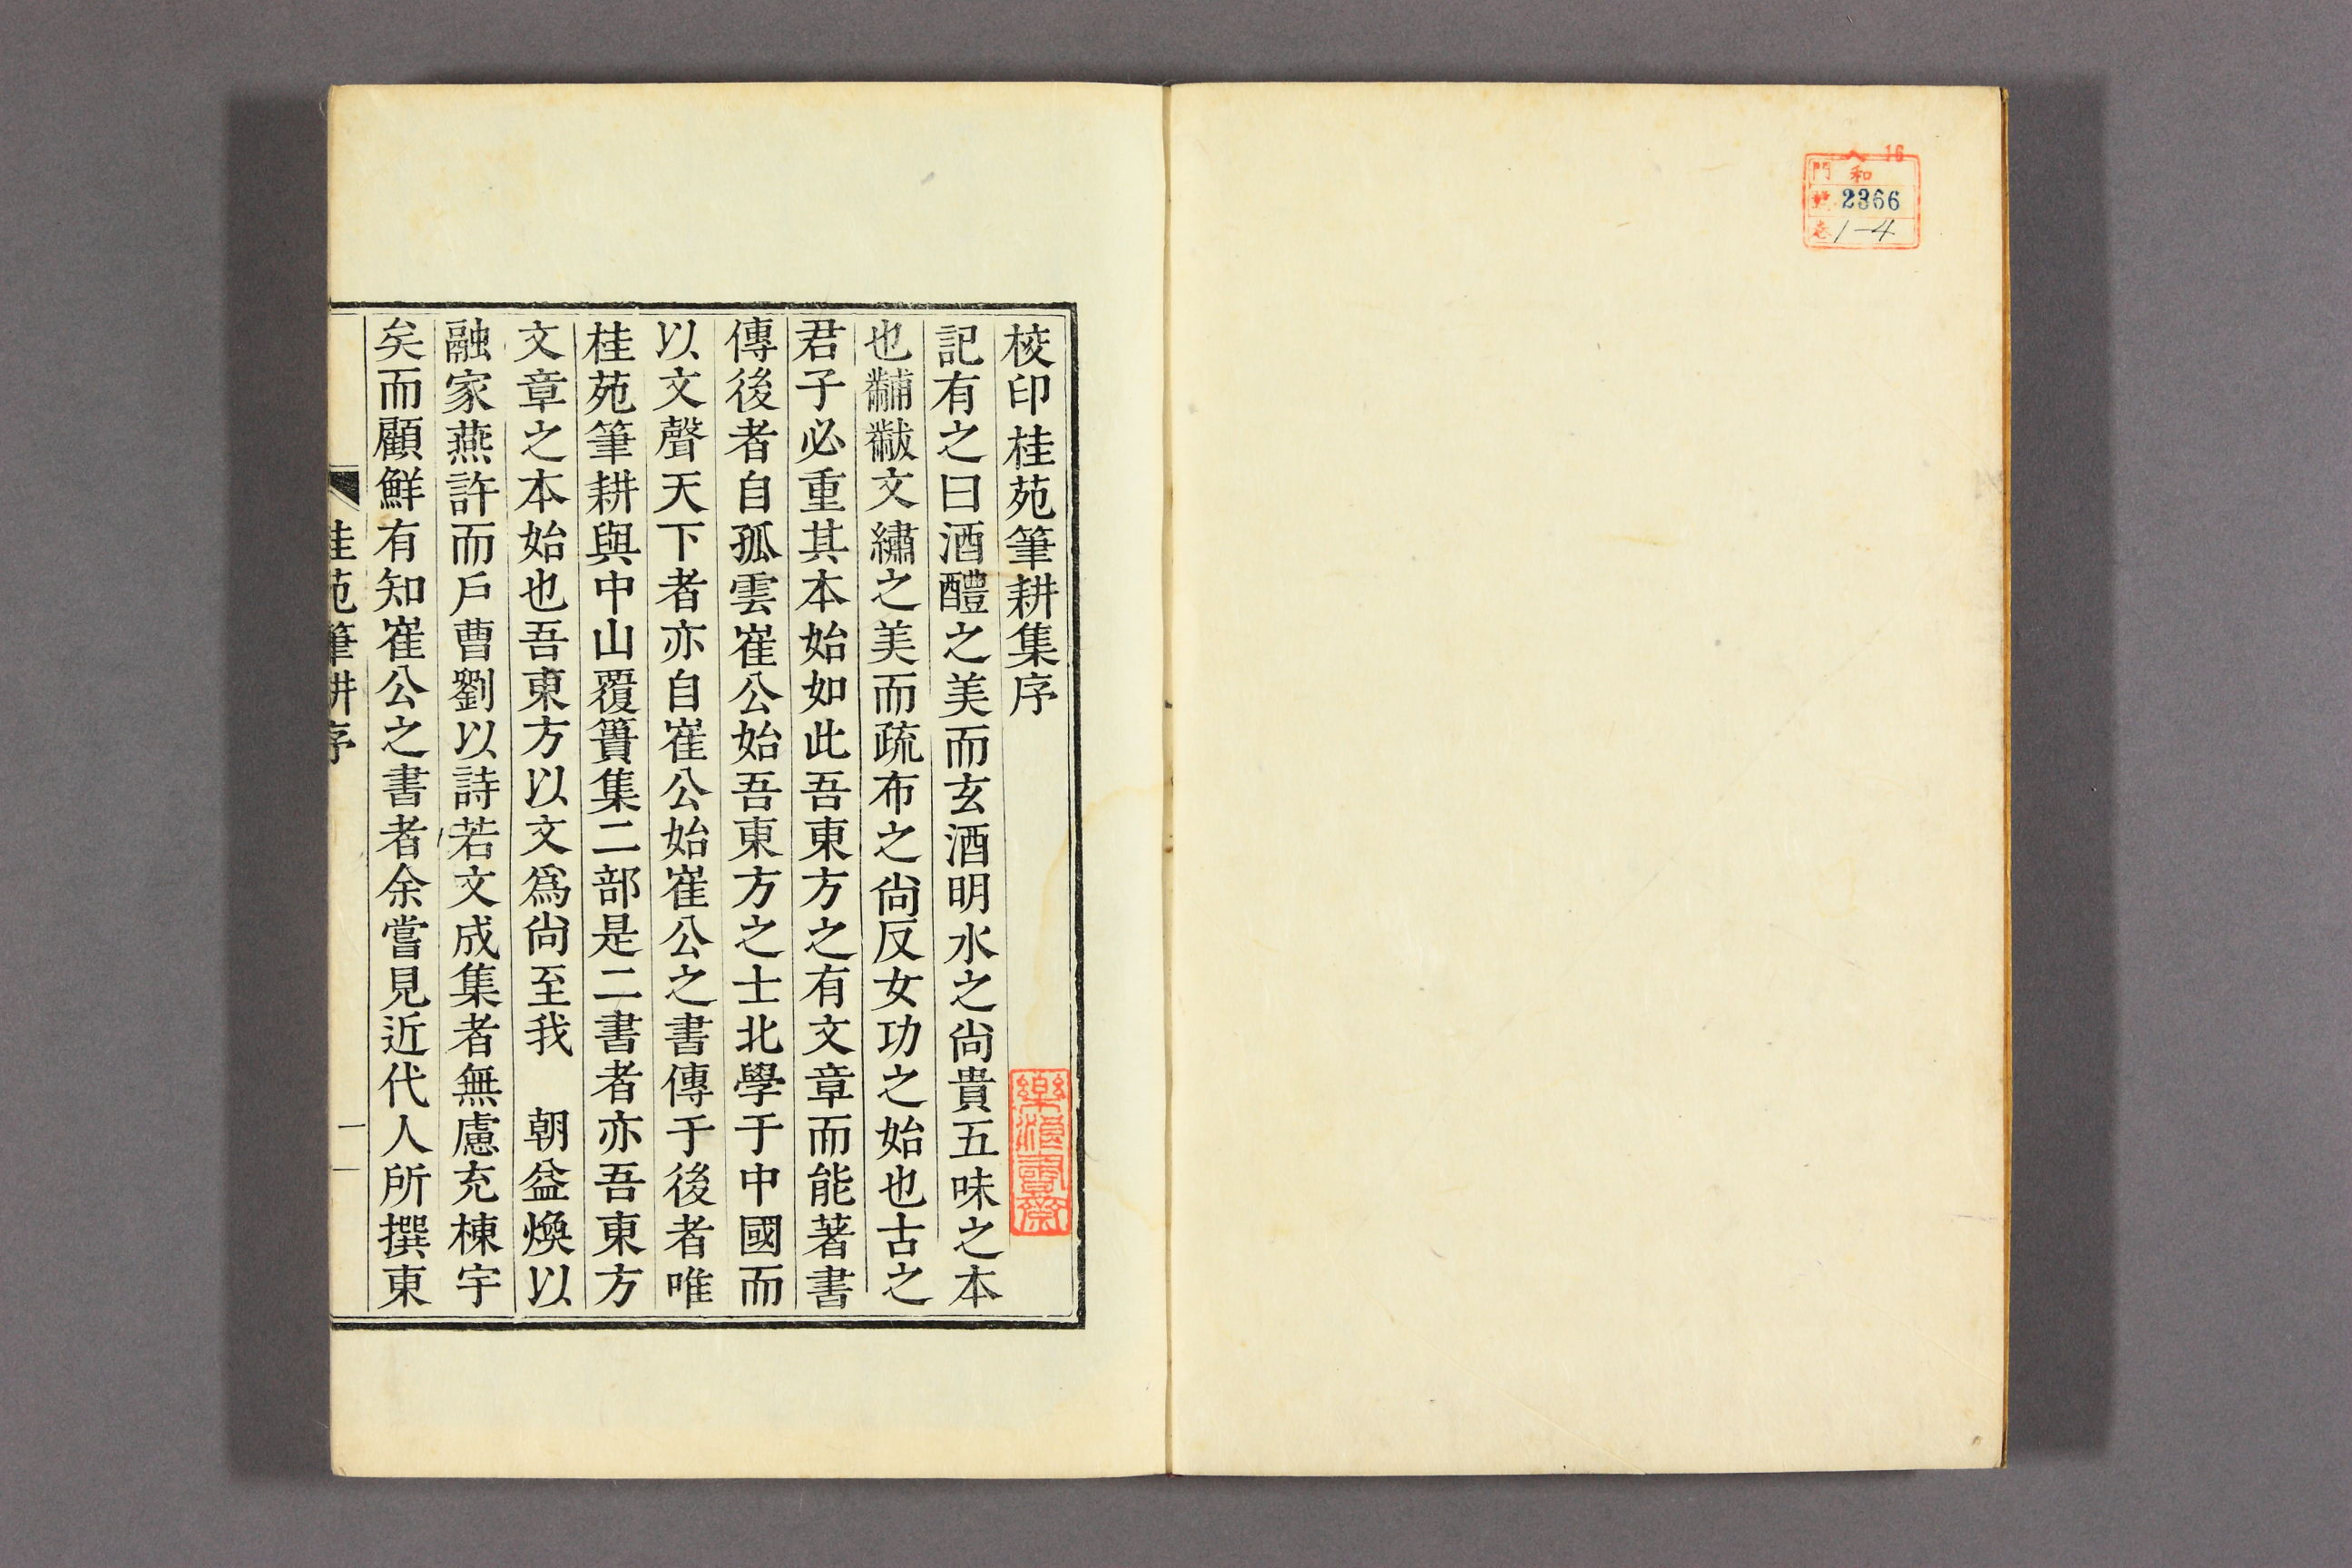 和
門
2366
卷1-4
校印桂苑筆耕集序
記有之曰酒醴之美而玄酒明水之尙貴五味之本
也黼黻文繡之美而疏布之尙反女功之始也古之
君子必重其本始如此吾東方之有文章而能著書
傳後者自孤雲崔公始吾東方之士北學于中國而
以文聲天下者亦自崔公始崔公之書傳于後者唯
桂苑筆耕與中山覆簣集二部是二書者亦吾東方
文章之本始也吾東方以文爲尙至我　朝益煥以
融家燕許而戶曹劉以詩若文成集者無慮充棟宇
矣而顧鮮有知崔公之書者余嘗見近代人所撰東
桂苑筆耕序
一
樂浪書齋